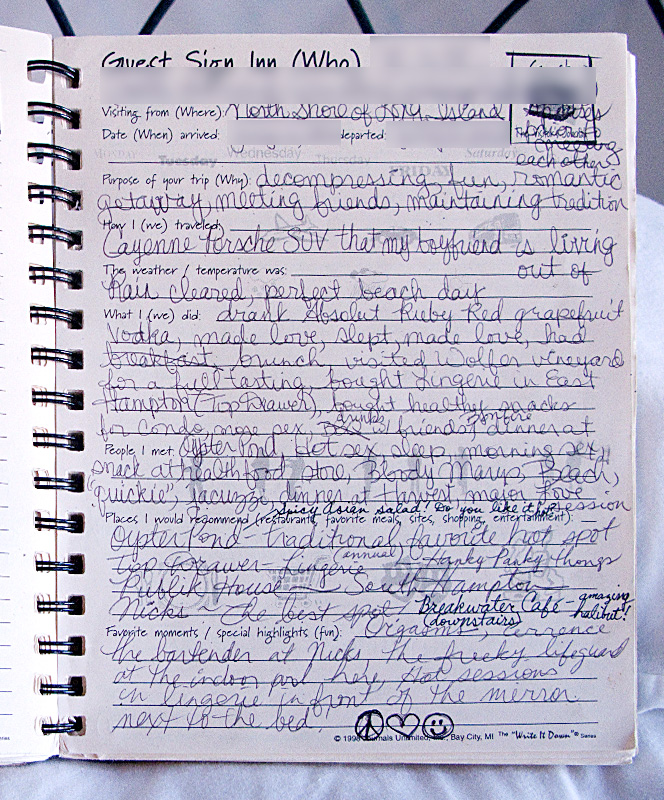 Guest Sign Inn (Who)
Visiting from (Where): North Shore of Long Island
Date (When) arrived: departed:
meeting
each other
Monday Tuesday Wednesday Thursday FRIDAY Saturday
Purpose of your trip (Why): decompressing, fun, romantic
getaway, meeting friends, maintaining tradition
How I (we) traveled:
Cayenne Porsche SUV that my boyfriend is living
The weather / temperature was: out of
Rain cleared, perfect beach day
What I (we) did: drank Absolut Rueby Red grapefruit
Vodka, made love, slept, made love, had
breakfast, brunch, visited Wolfer vineyard
for a full tasting, bought Lingerie in East
Hampton (Top Drawer), bought healthy snacks
for Condo, more sex, drinks w/ friends, bonfire, dinner at
People I met: Oyster Pond, Hot sex, sleep, morning sex,
snack at health food store, Bloody Marys, Beach,
"quickie", Jacuzzi, dinner at Harvest, major love
session
spicy Asian salad! Do you like it
Places I would recommend (restaurants, favorite meals, sites, shopping, entertainment):
Oyster Pond - traditional favorite hot spot
Top Drawer - Lingerie (annual) - Hanky Panky thongs
Publik House - South Hampton
Nicks - the best spot / Breakwater Café - amazing halibut!
(downstairs)
Favorite moments / special highlights (fun): Orgasms, Terrance
the bartender at Nicks, The freeky lifeguard
at the indoor pool here, Hot sessions
in lingerie in front of the mirror
next to the bed!
© 1998 Journals Unlimited, Inc., Bay City, MI The "Write It Down"® Series